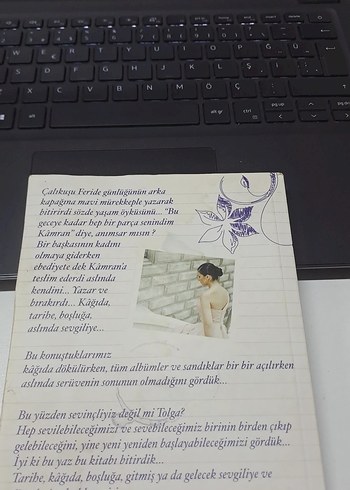 Çalıkuşu Feride günlüğünün arka
kapağına mavi mürekkeple yazarak
bitirirdi sözde yaşam öyküsünü... "Bu
geceye kadar hep bir parça senindim
Kâmran" diye, anımsar mısın ?
Bir başkasının kadını
olmaya giderken
ebediyete dek Kâmran'a
teslim ederdi aslında
kendini... Yazar ve
bırakırdı... Kâğıda,
tarihe, boşluğa,
aslında sevgiliye...
Bu konuştuklarımız
kâğıda dökülürken, tüm albümler ve sandıklar bir bir açılırken
aslında serüvenin sonunun olmadığını gördük...
Bu yüzden sevinçliyiz değil mi Tolga?
Hep sevilebileceğimizi ve sevebileceğimiz birinin birden çıkıp
gelebileceğini, yine yeni yeniden başlayabileceğimizi gördük...
İyi ki bu yaz bu kitabı bitirdik...
Tarihe, kâğıda, boşluğa, gitmiş ya da gelecek sevgiliye ve